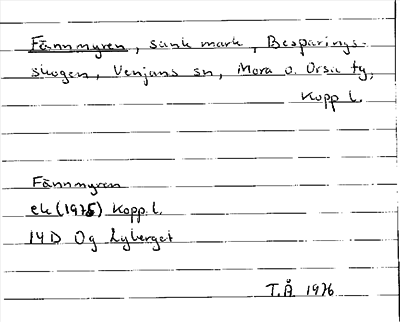 Fännmyren, sank mark, Besparings-
skogen, Venjans sn, Mora o. Orsa tg,
Kopp l.
Fännmyren
ek (1975) Kopp. l.
14D Og Lyberget
T.Å. 1976